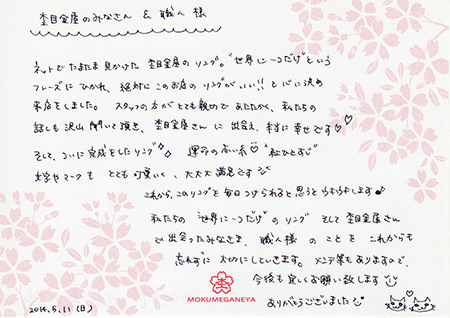 杢目金屋のみなさん & 職人様
ネットでたまたま見かけた 杢目金屋のリング。"世界に一つだけ"という
フレーズにひかれ、絶対にこのお店のリングがいい!!と心に決め
来店をしました。スタッフの方がとても親切であたたかく、私たちの
話しも沢山聞いて頂き、杢目金屋さんに出会え、本当に幸せです♡
そして、ついに完成をしたリング 運命の赤い糸♡"紅ひとすじ"
文字やマークもとても可愛いく、大大大満足です
これから、このリングを毎日つけられると思うとわくわくします♪
私たちの"世界に一つだけ"のリング そして杢目金屋さん
で出会ったみなさま、職人様のことをこれからも
忘れずに大切にしていきます。メンテ等もありますので、
今後も宜しくお願い致します
ありがとうございました
MOKUMEGANEYA
2014.5.11(日)